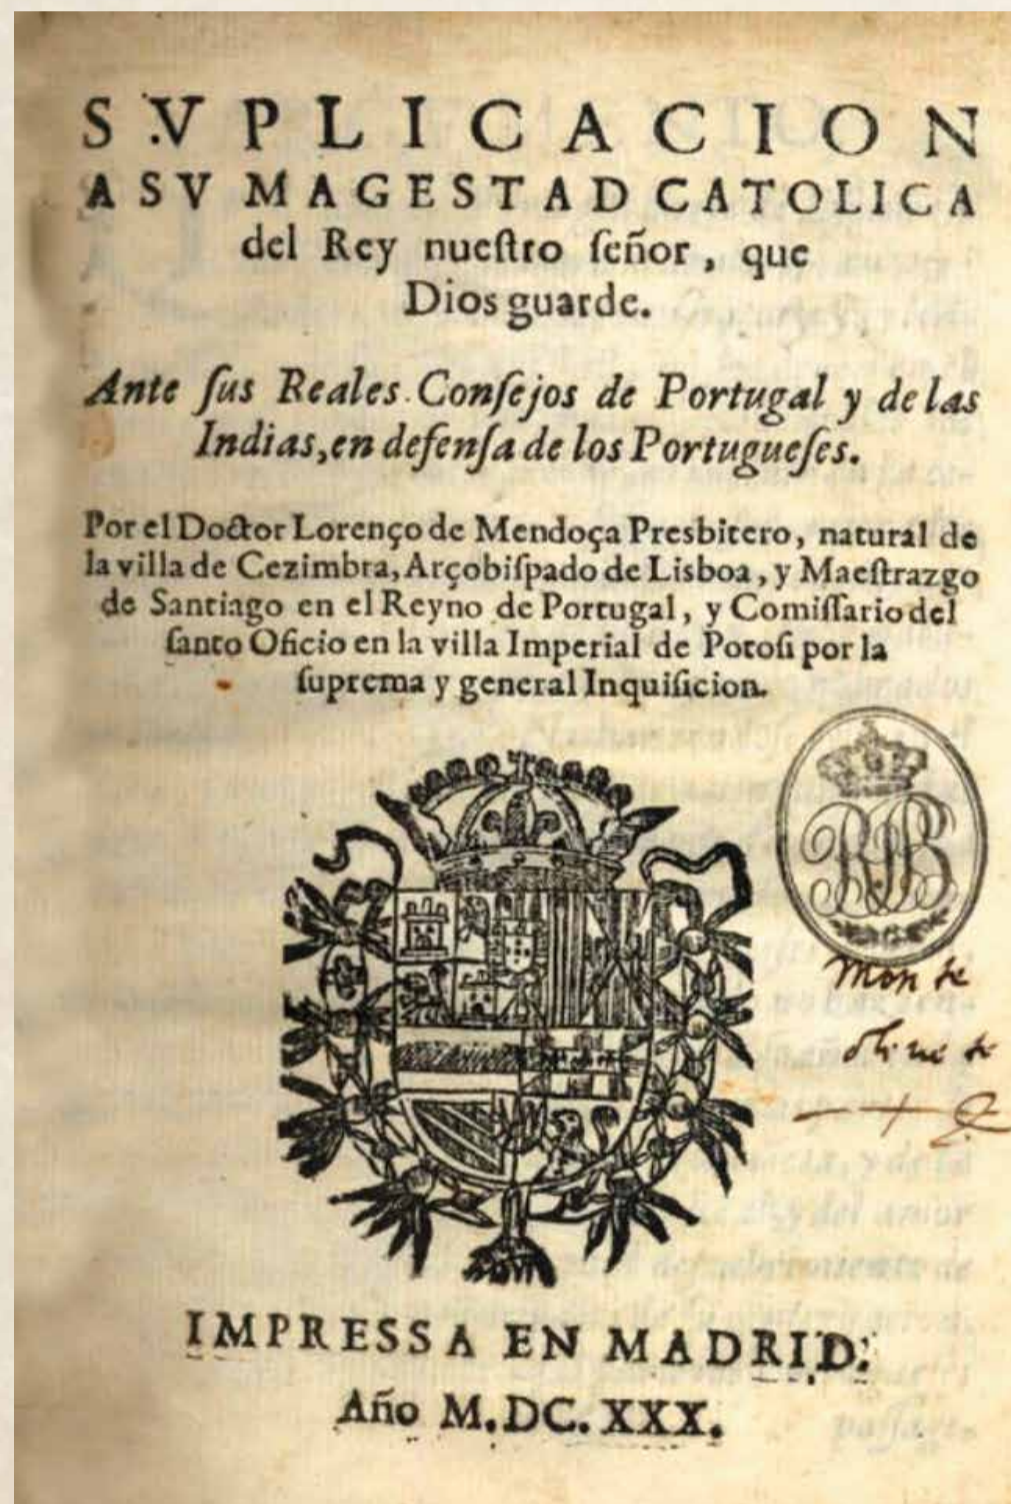 SVPLICACION
A SV MAGESTAD CATOLICA
del Rey nueſtro ſeñor, que
Dios guarde.
Ante ſus Reales Conſejos de Portugal y de las
Indias, en defenſa de los Portugueſes.
Por el Doctor Lorenço de Mendoça Presbitero, natural de
la villa de Cezimbra, Arçobiſpado de Lisboa, y Maeſtrazgo
de Santiago en el Reyno de Portugal, y Comiſſario del
ſanto Oficio en la villa Imperial de Potoſi por la
ſuprema y general Inquiſicion.
Monte
oliuete
IMPRESSA EN MADRID:
Año M.DC.XXX.